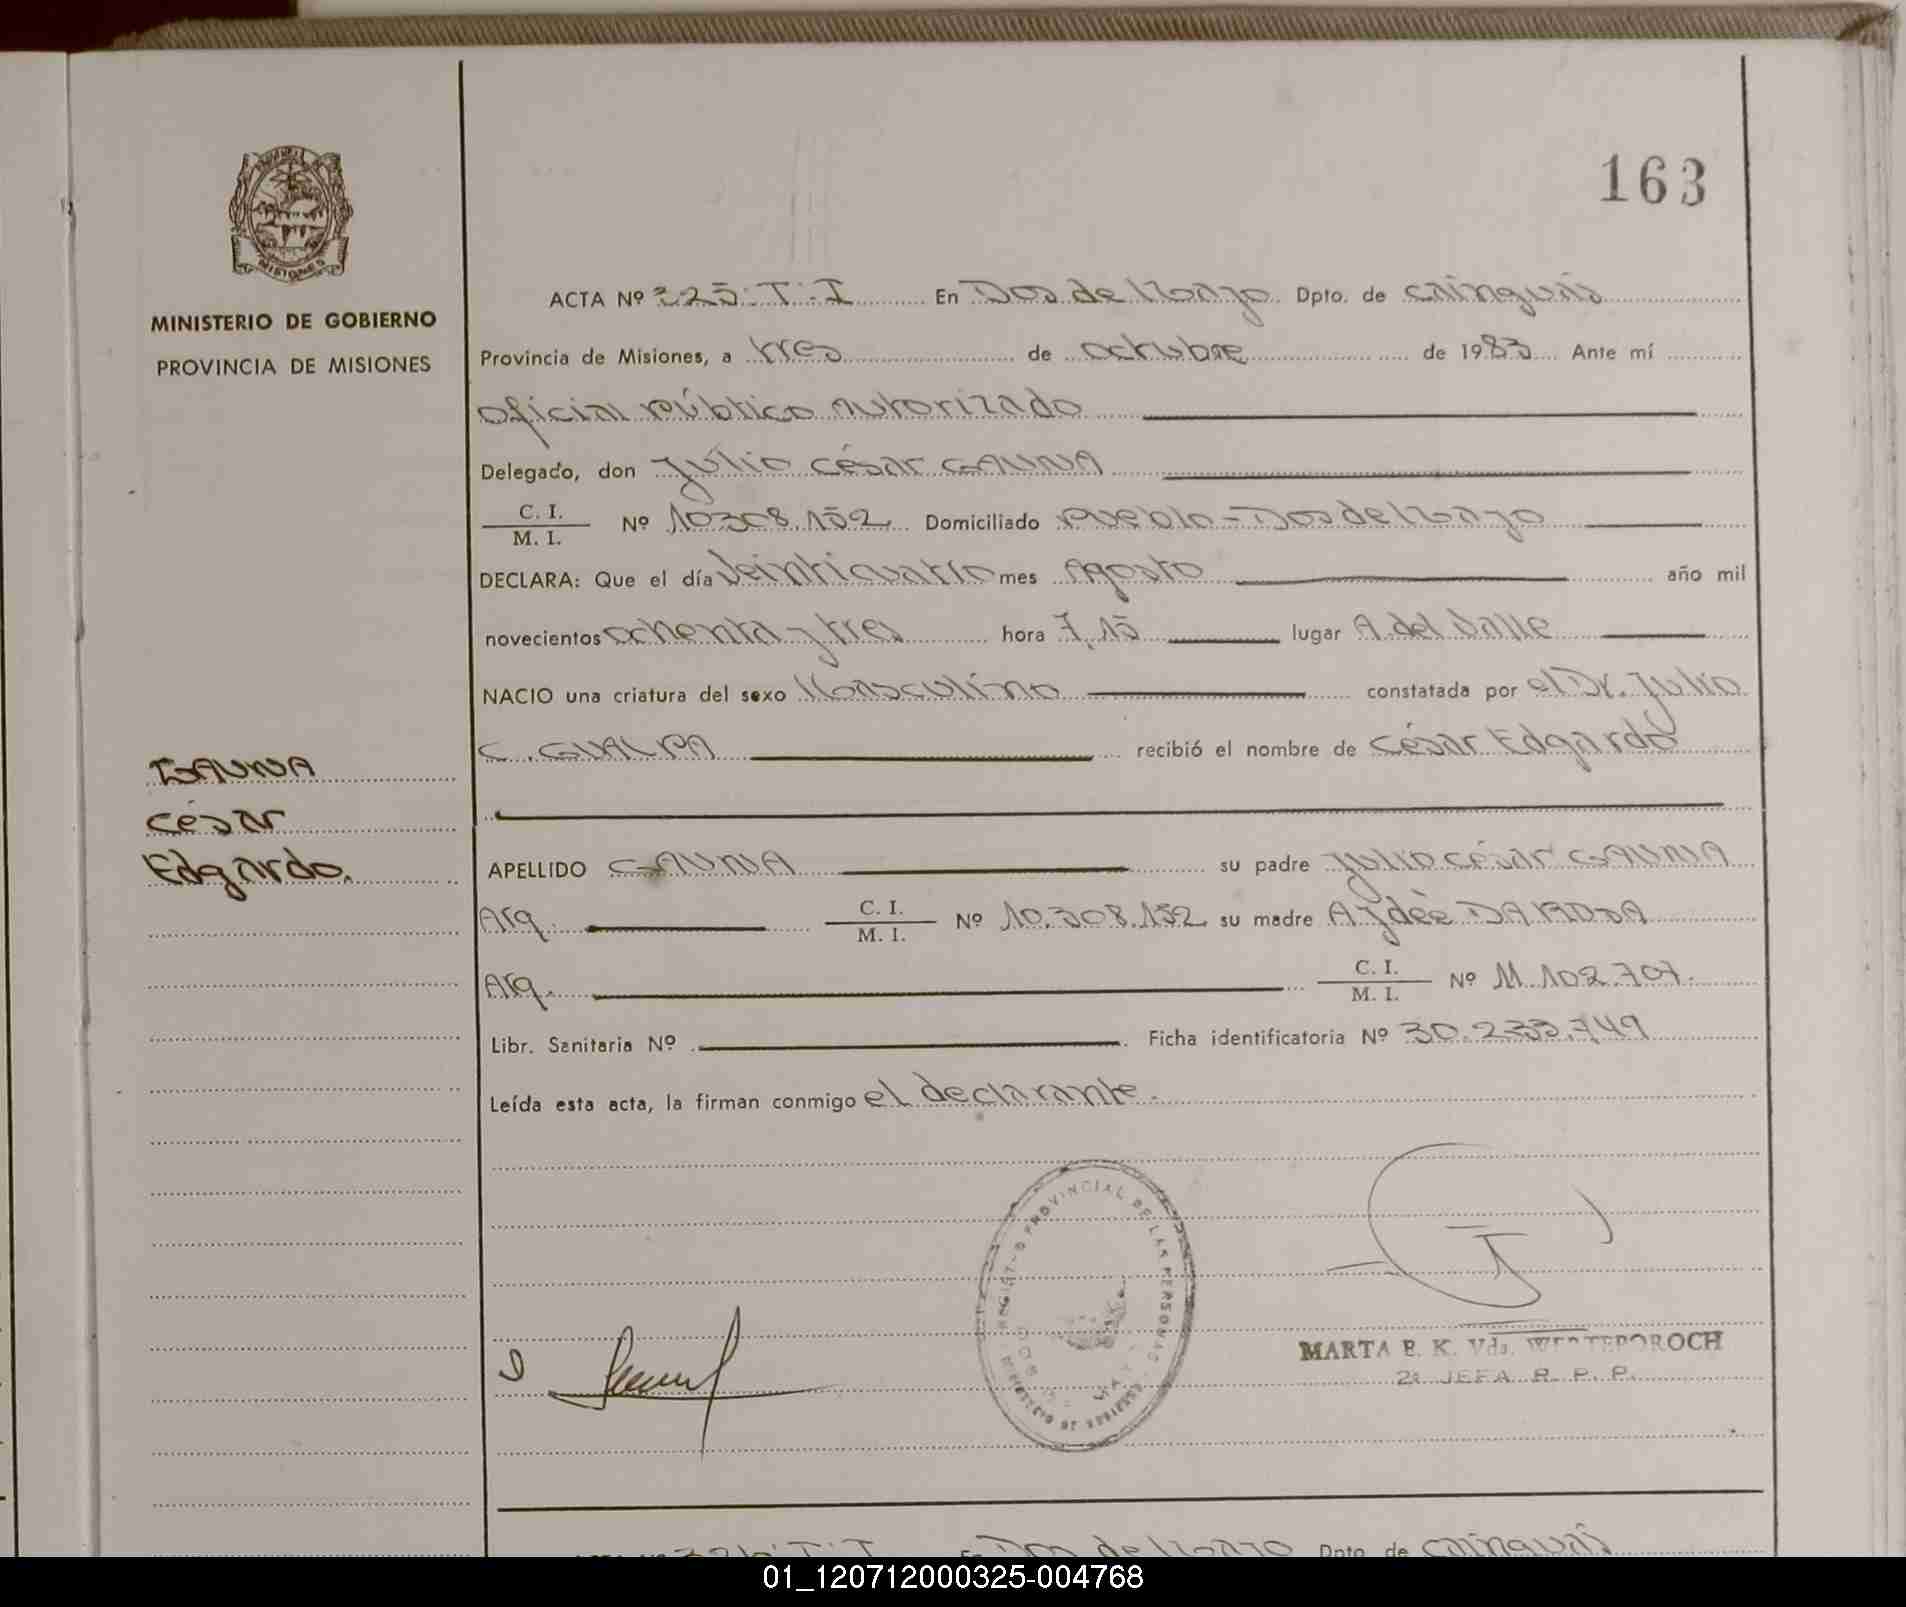 163
MISIONES
MINISTERIO DE GOBIERNO
PROVINCIA DE MISIONES
GAUNA
César
Edgardo.
ACTA Nº 325. T. I En Dos de Mayo Dpto. de Cainguás
Provincia de Misiones, a tres de octubre de 1983 Ante mí
oficial público autorizado
Delegado, don Julio César GAUNA
C. I. / M. I. Nº 10308.152 Domiciliado Pueblo - Dos de Mayo
DECLARA: Que el día Veinticuatro mes Agosto año mil
novecientos ochenta y tres hora 7,15 lugar A. del Valle
NACIO una criatura del sexo Masculino constatada por el Dr. Julio
C. GUALPA recibió el nombre de César Edgardo
APELLIDO GAUNA su padre Julio César GAUNA
Arq. C. I. / M. I. Nº 10.308.152 su madre Aydeè
Arq. C. I. / M. I. Nº 11.102.707.
Libr. Sanitaria Nº Ficha identificatoria Nº 30.233.749
Leída esta acta, la firman conmigo el declarante.
REGISTRO PROVINCIAL DE LAS PERSONAS
MINISTERIO DE GOBIERNO
MARTA E. K. Vda.
2ª JEFA R. P. P.
En Dos de Mayo Dpto. de Cainguás
01_120712000325-004768